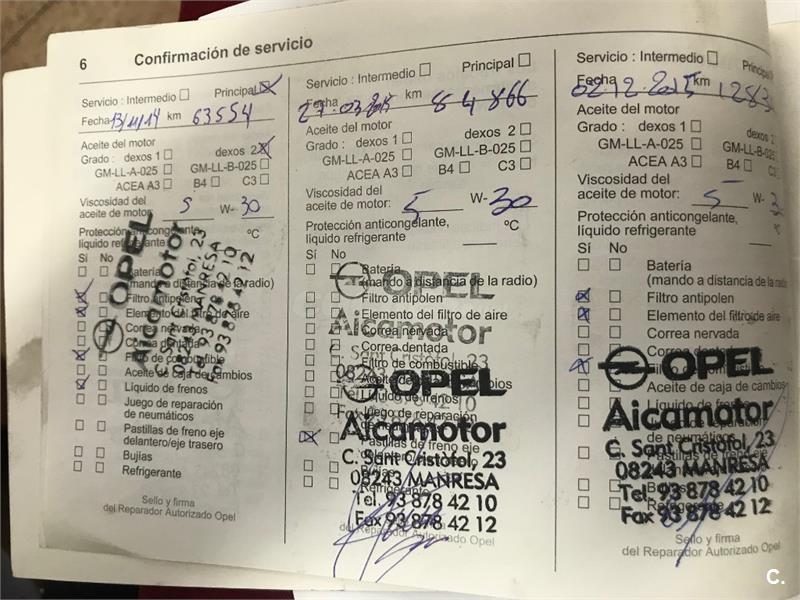 6 Confirmación de servicio
Servicio : Intermedio Principal
Fecha 13/11/14 km 63554
Aceite del motor
Grado : dexos 1 dexos 2
GM-LL-A-025 GM-LL-B-025
ACEA A3 B4 C3
Viscosidad del
aceite de motor: 5 W- 30
Protección anticongelante,
líquido refrigerante ºC
Sí No
Batería
(mando a distancia de la radio)
Filtro antipolen
Elemento del filtro de aire
Correa nervada
Correa dentada
Filtro de combustible
Aceite de caja de cambios
Líquido de frenos
Juego de reparación
de neumáticos
Pastillas de freno eje
delantero/eje trasero
Bujías
Refrigerante
OPEL
Aicamotor
C. Sant Cristofol, 23
08243 MANRESA
Tel. 93 878 42 10
Fax 93 878 42 12
Sello y firma
del Reparador Autorizado Opel
Servicio : Intermedio Principal
Fecha 27-03-2015 km 84866
Aceite del motor
Grado : dexos 1 dexos 2
GM-LL-A-025 GM-LL-B-025
ACEA A3 B4 C3
Viscosidad del
aceite de motor: 5 W- 30
Protección anticongelante,
líquido refrigerante ºC
Sí No
Batería
(mando a distancia de la radio)
Filtro antipolen
Elemento del filtro de aire
Correa nervada
Correa dentada
Filtro de combustible
Aceite de caja de cambios
Líquido de frenos
Juego de reparación
Pastillas de freno eje
Bujías
Refrigerante
OPEL
Aicamotor
C. Sant Cristofol, 23
OPEL
Aicamotor
C. Sant Cristofol, 23
08243 MANRESA
Tel. 93 878 42 10
Fax 93 878 42 12
del Reparador Autorizado Opel
Servicio : Intermedio Principal
Fecha 02-12-2015 km 1283
Aceite del motor
Grado : dexos 1 dexos
GM-LL-A-025 GM-LL-B-025
ACEA A3 B4 C3
Viscosidad del
aceite de motor: 5 W- 3
Protección anticongelante,
líquido refrigerante ºC
Sí No
Batería
(mando a distancia de la radio)
Filtro antipolen
Elemento del filtro de aire
Correa nervada
Correa dentada
Aceite de caja de cambios
Líquido de frenos
de neumáticos
OPEL
Aicamotor
C. Sant Cristofol, 23
08243 MANRESA
Tel. 93 878 42 10
Fax 93 878 42 12
Sello y firma
del Reparador Autorizado Opel
C.